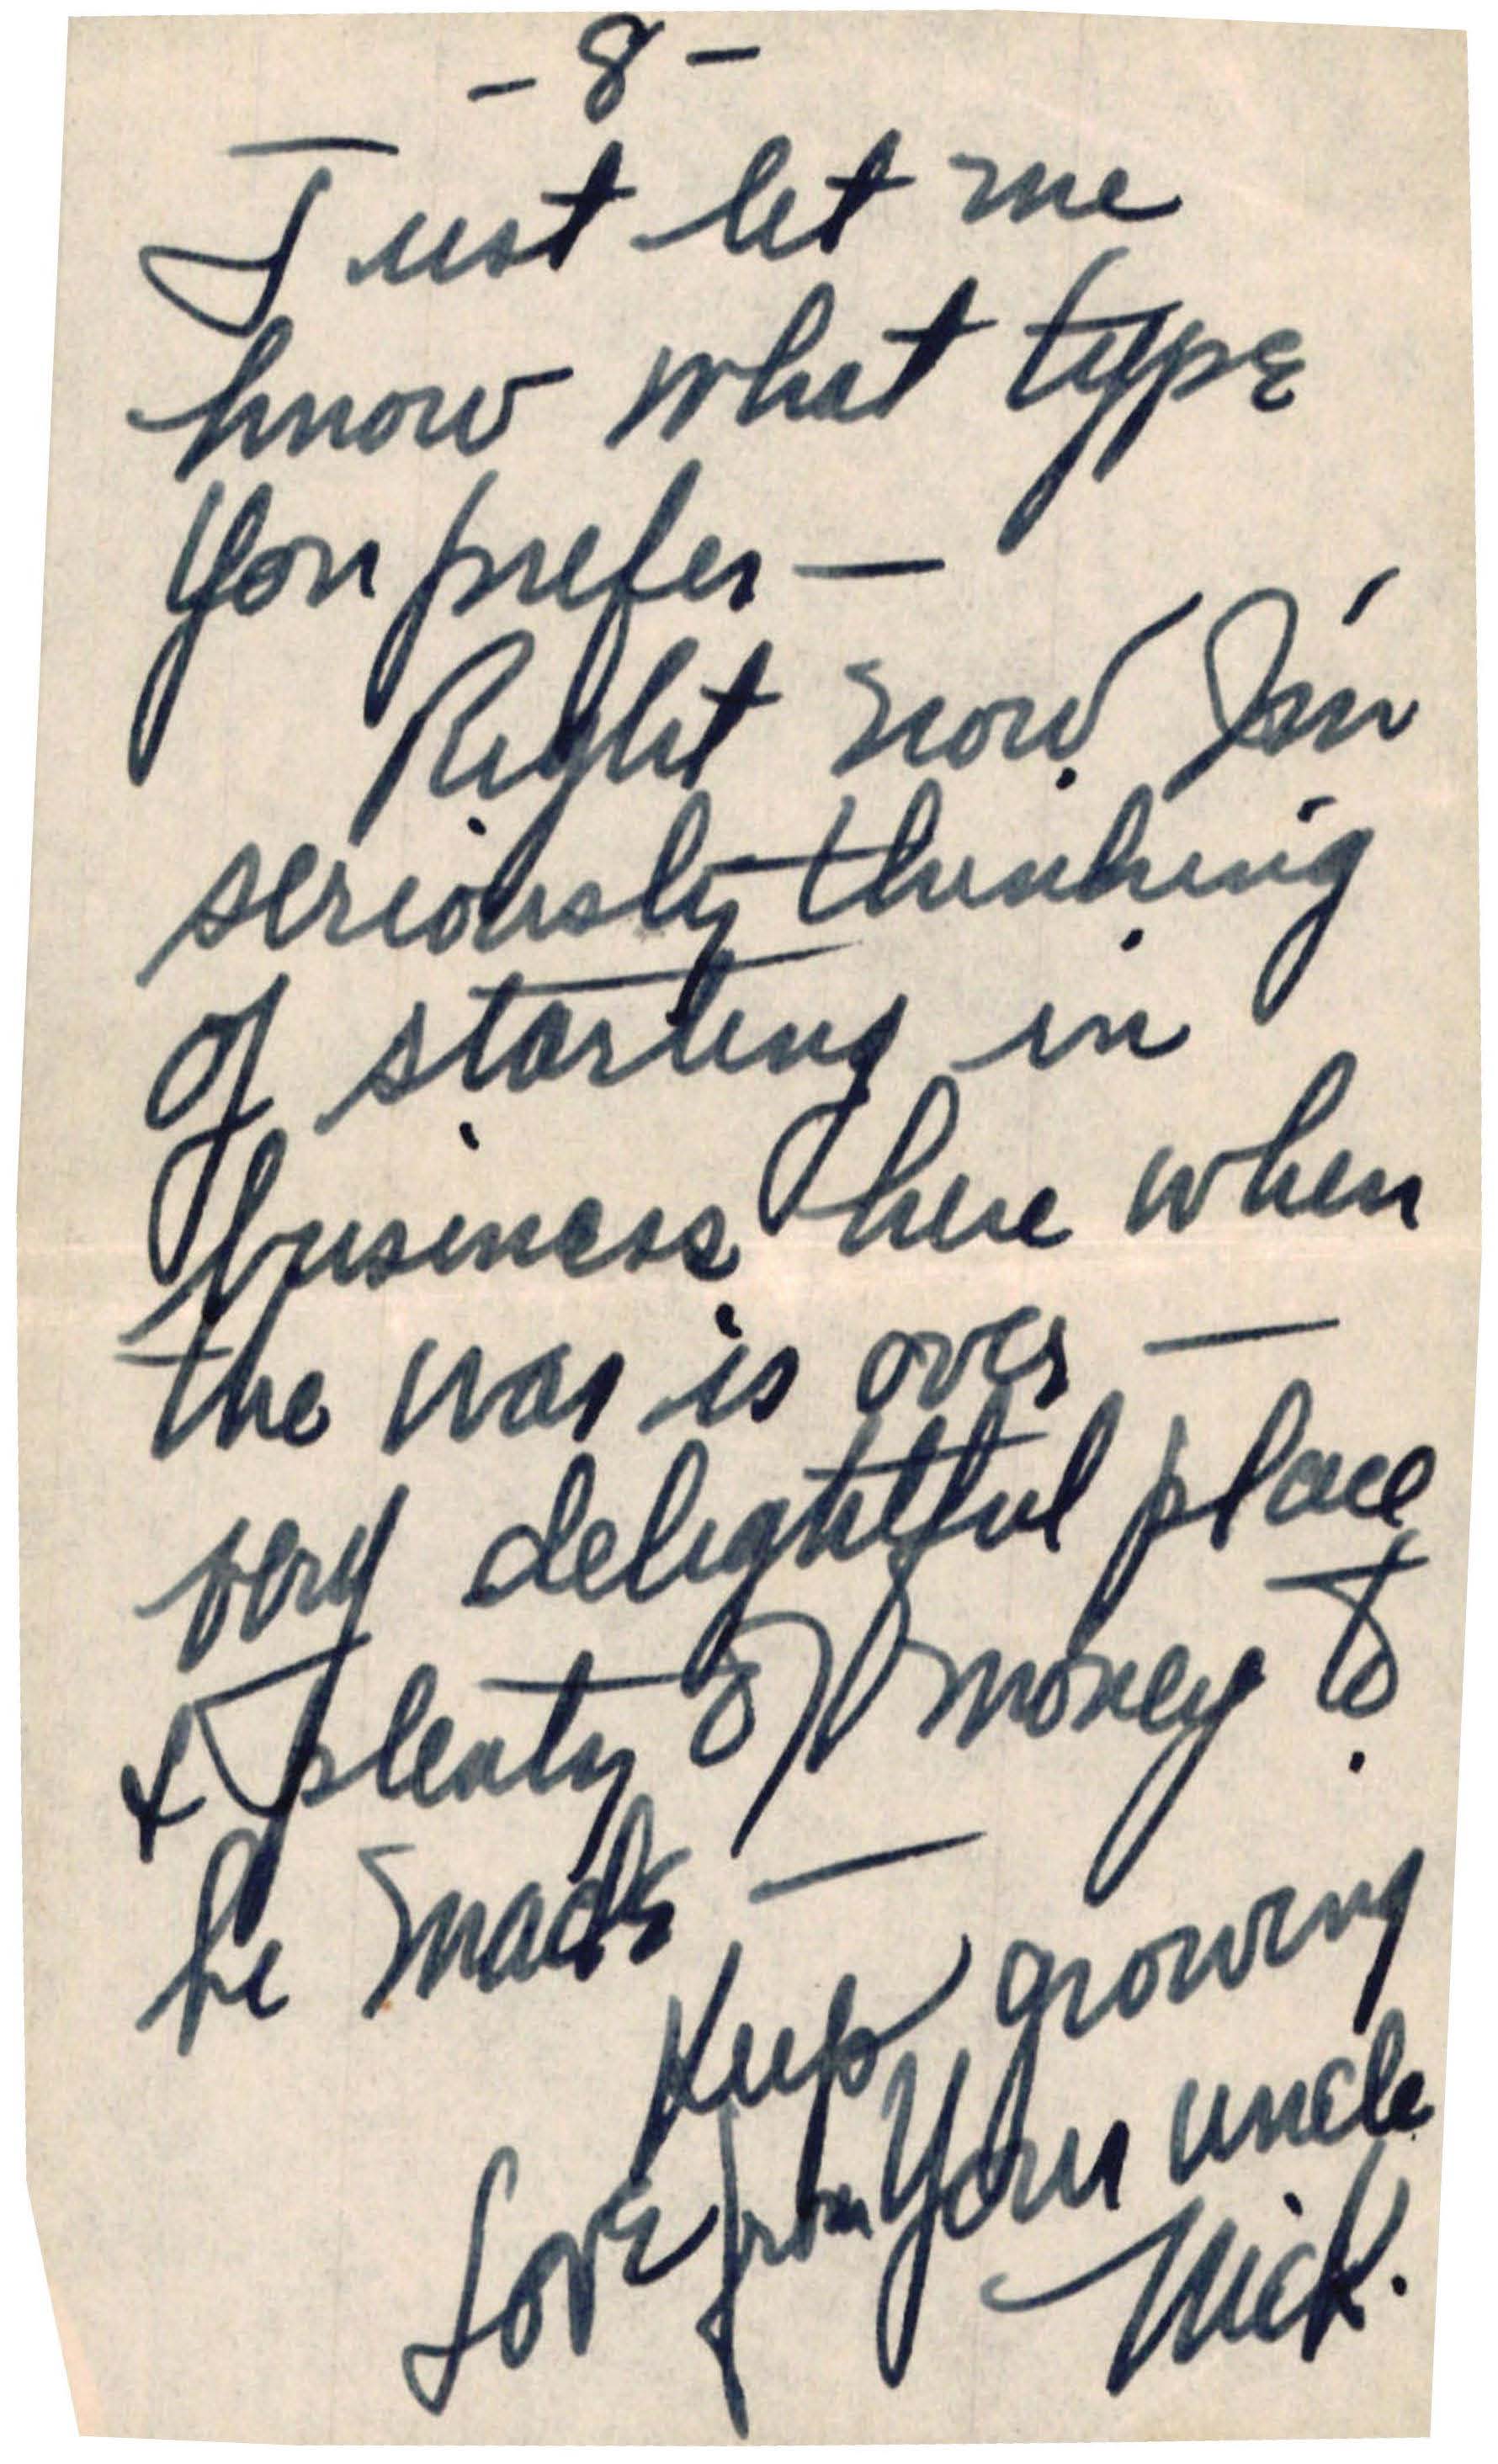 - 8 -
Just let me
know what type
you prefer —
Right now I'm
seriously thinking
of starting in
business here when
the war is over —
very delightful place
& plenty of money to
be made —
Keep growing
Love from Your uncle
Nick.